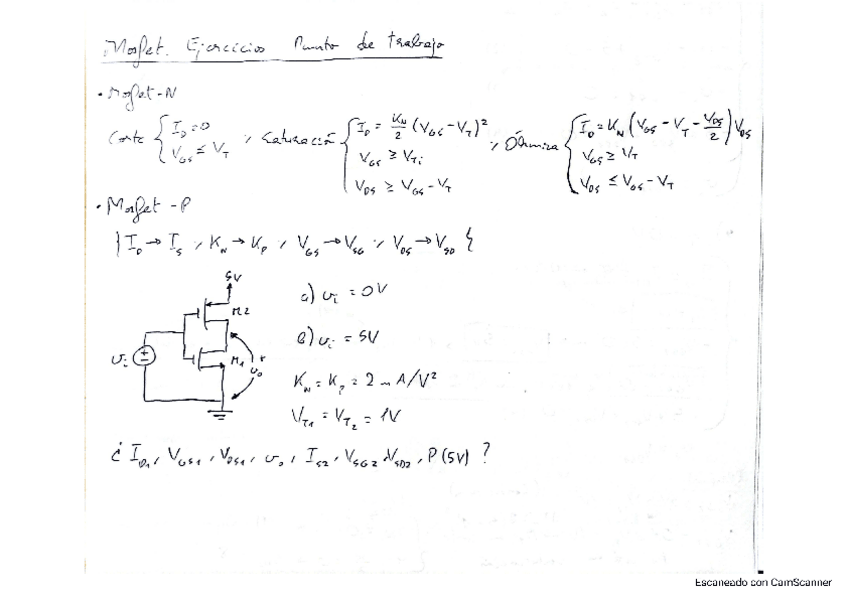 Mosfet. Ejercicios Punto de trabajo
• Mosfet-N
Corte { I_D = 0 , V_GS ≤ V_T ; Saturación { I_D = K_N/2 (V_GS - V_T)² , V_GS ≥ V_T ; V_DS ≥ V_GS - V_T ; Óhmica { I_D = K_N (V_GS - V_T - V_DS/2) V_DS , V_GS ≥ V_T , V_DS ≤ V_GS - V_T
• Mosfet-P
{ I_D → I_S , K_N → K_P , V_GS → V_SG , V_DS → V_SD {
5V
M2
a) v_i = 0V
b) v_i = 5V
v_i
M1
+
v_o
K_N = K_P = 2 mA/V²
V_T1 = V_T2 = 1V
¿ I_D1, V_GS1, V_DS1, v_o, I_S2, V_SG2, V_SD2, P(5V) ?
Escaneado con CamScanner